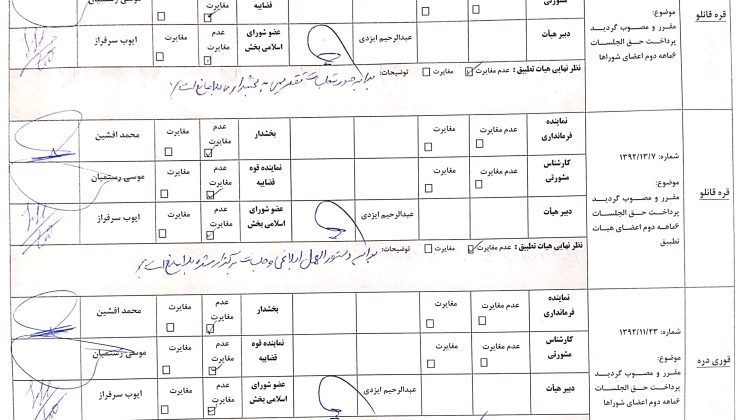 قره قانلو
موضوع:
مقرر و مصوب گردید
پرداخت حق الجلسات
۶ماهه دوم اعضای شوراها
مشورتی
عدم مغایرت
مغایرت
قضاییه
مغایرت
مغایرت
موسی رستمیان
دبیر هیأت
عبدالرحیم ایزدی
عضو شورای
اسلامی بخش
عدم
مغایرت
مغایرت
ایوب سرفراز
نظر نهایی هیات تطبیق: عدم مغایرت مغایرت توضیحات:
قره قانلو
شماره: ۱۳۹۲/۱۳/۷
موضوع:
مقرر و مصوب گردید
پرداخت حق الجلسات
۶ماهه دوم اعضای هیات
تطبیق
نماینده
فرمانداری
عدم مغایرت
مغایرت
بخشدار
عدم
مغایرت
مغایرت
محمد افشین
کارشناس
مشورتی
عدم مغایرت
مغایرت
نماینده قوه
قضاییه
عدم
مغایرت
مغایرت
موسی رستمیان
دبیر هیأت
عبدالرحیم ایزدی
عضو شورای
اسلامی بخش
عدم
مغایرت
مغایرت
ایوب سرفراز
نظر نهایی هیات تطبیق: عدم مغایرت مغایرت توضیحات:
قوری دره
شماره: ۱۳۹۲/۱۱/۲۳
موضوع:
مقرر و مصوب گردید
پرداخت حق الجلسات
۶ماهه دوم اعضای شوراها
نماینده
فرمانداری
عدم مغایرت
مغایرت
بخشدار
عدم
مغایرت
مغایرت
محمد افشین
کارشناس
مشورتی
عدم مغایرت
مغایرت
نماینده قوه
قضاییه
عدم
مغایرت
مغایرت
موسی رستمیان
دبیر هیأت
عبدالرحیم ایزدی
عضو شورای
اسلامی بخش
عدم
مغایرت
مغایرت
ایوب سرفراز